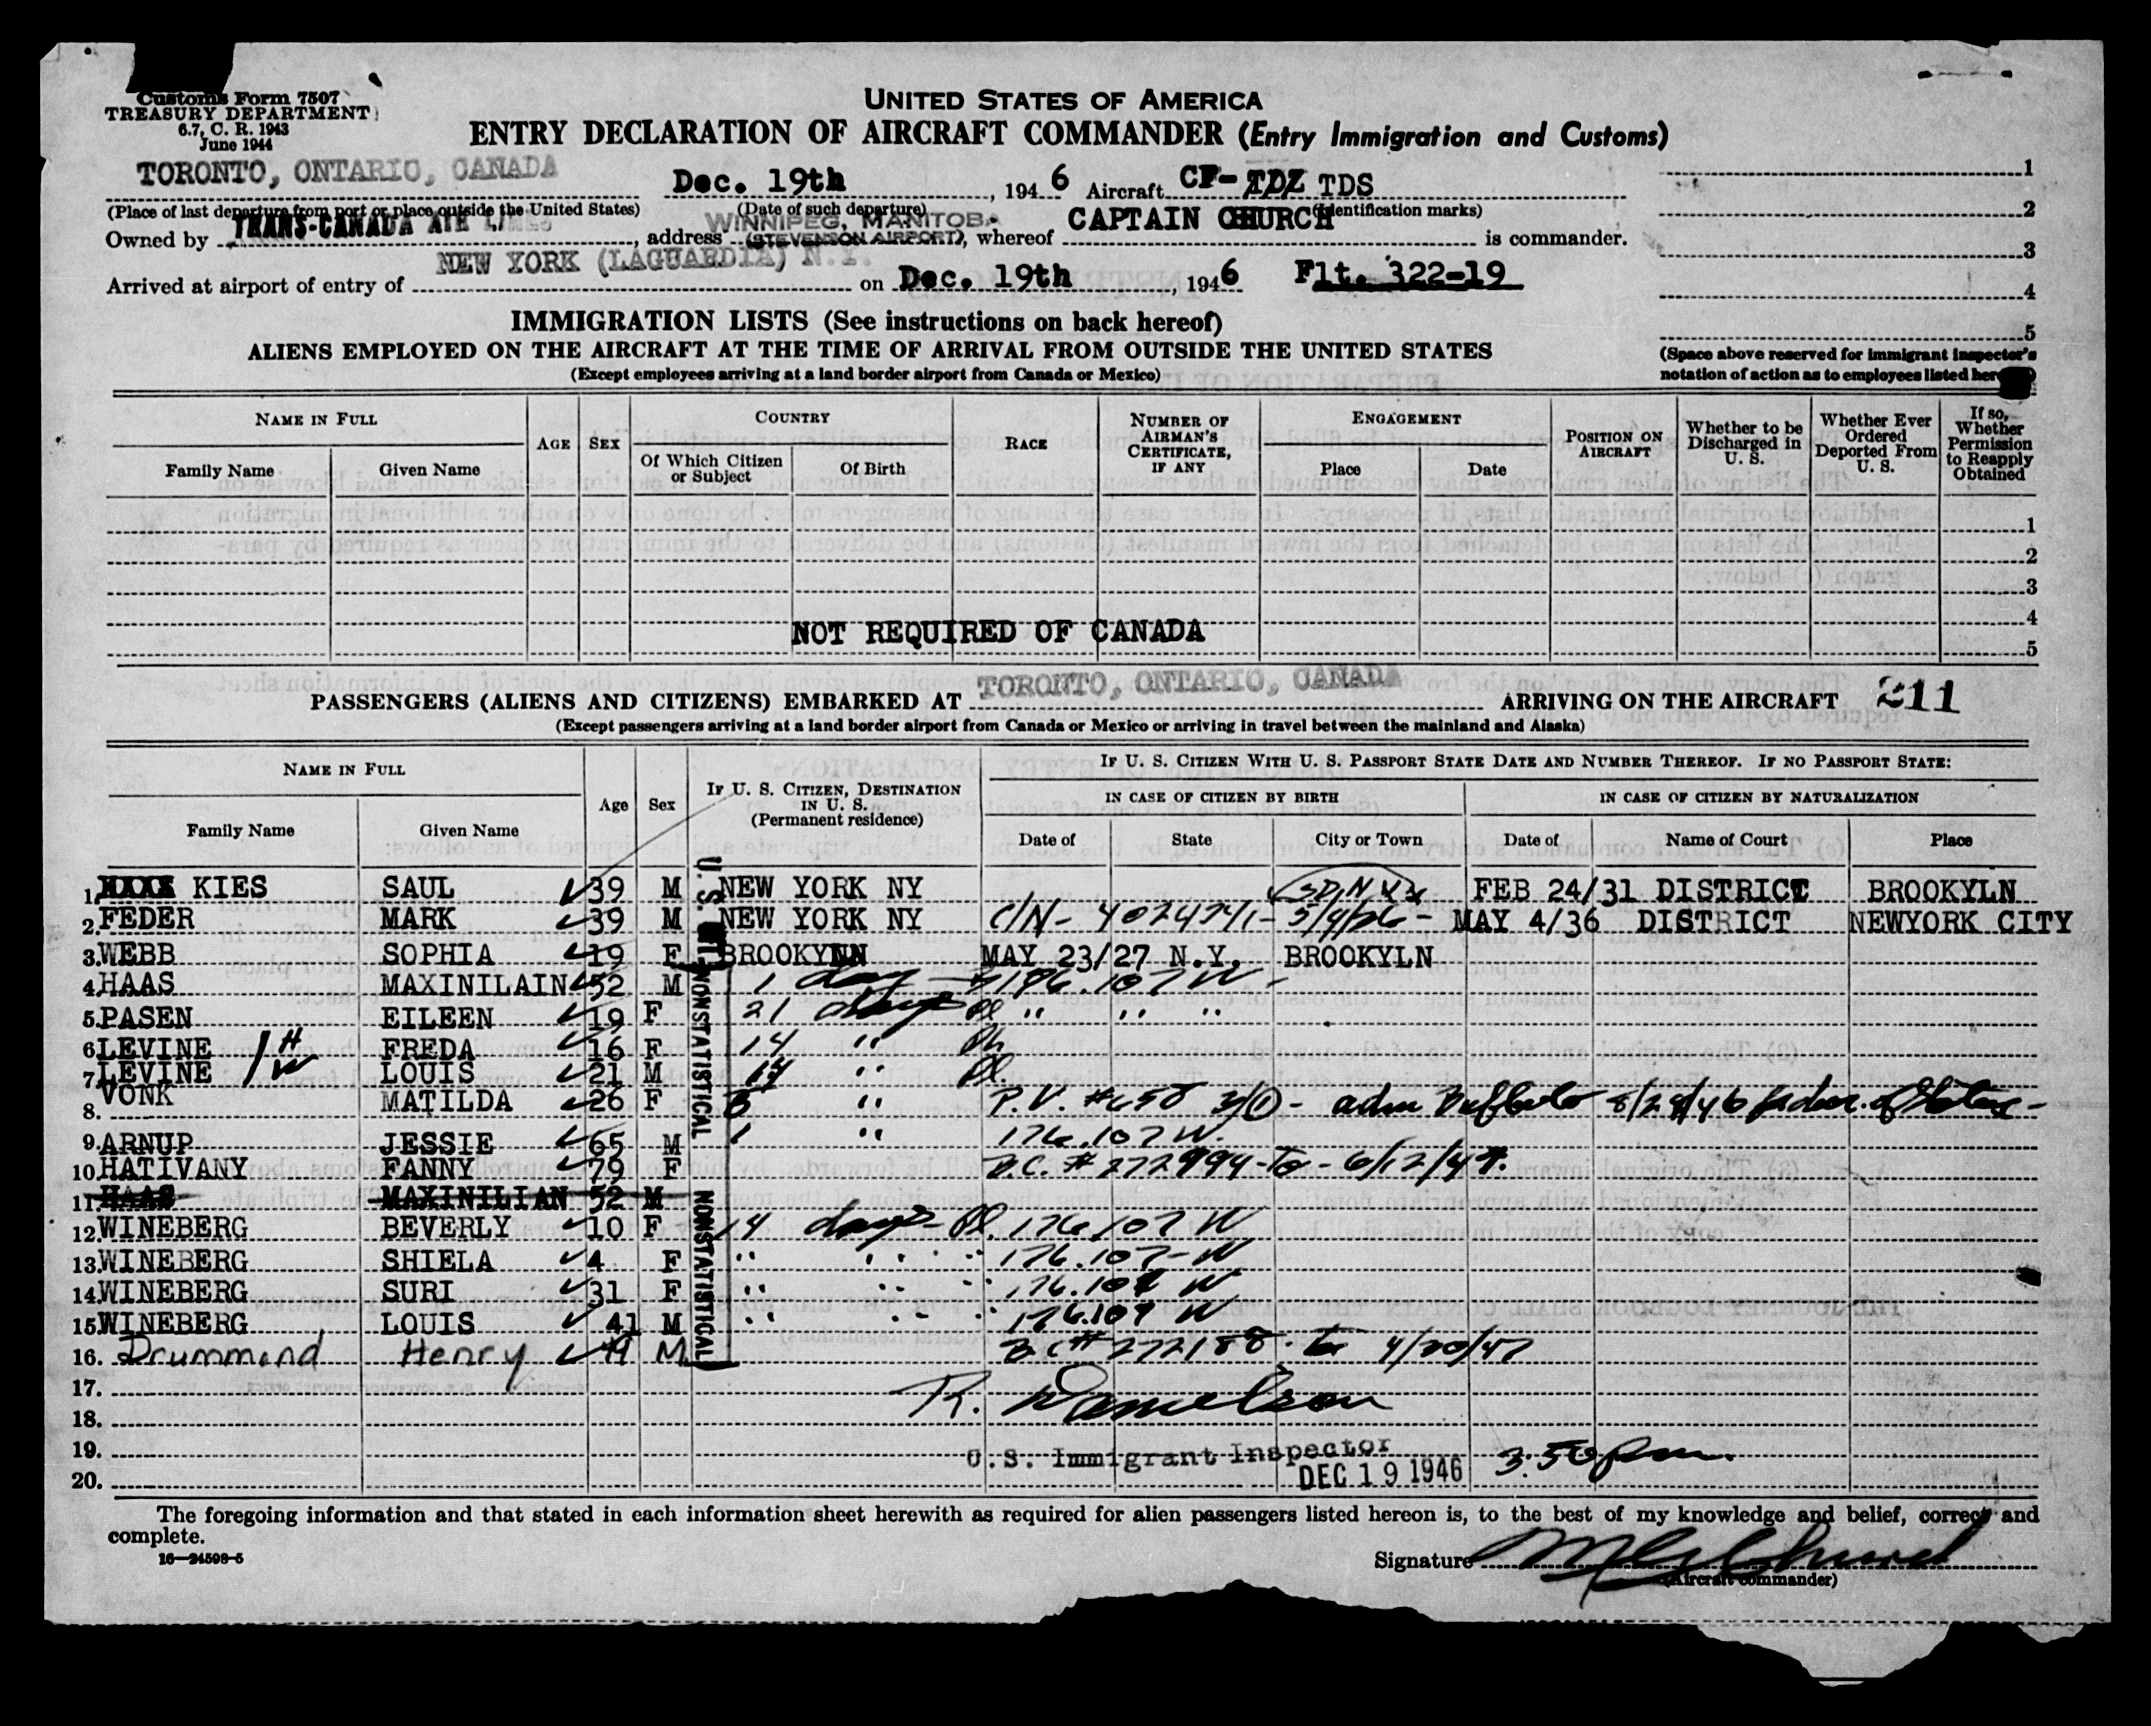 Customs Form 7507
TREASURY DEPARTMENT
6.7, C. R. 1943
June 1944
UNITED STATES OF AMERICA
ENTRY DECLARATION OF AIRCRAFT COMMANDER (Entry Immigration and Customs)
TORONTO, ONTARIO, CANADA Dec. 19th, 1946 Aircraft CF-TDZ TDS
(Place of last departure from port or place outside the United States) (Date of such departure) (Identification marks)
Owned by TRANS-CANADA AIR LINES, address WINNIPEG, MANITOB. (STEVENSON AIRPORT), whereof CAPTAIN CHURCH is commander.
Arrived at airport of entry of NEW YORK (LAGUARDIA) N.Y. on Dec. 19th, 1946 Flt. 322-19
1
2
3
4
5
(Space above reserved for immigrant inspector's
notation of action as to employees listed
IMMIGRATION LISTS (See instructions on back hereof)
ALIENS EMPLOYED ON THE AIRCRAFT AT THE TIME OF ARRIVAL FROM OUTSIDE THE UNITED STATES
(Except employees arriving at a land border airport from Canada or Mexico)
NAME IN FULL
Family Name Given Name
AGE SEX
COUNTRY
Of Which Citizen or Subject Of Birth
RACE
NUMBER OF AIRMAN'S CERTIFICATE, IF ANY
ENGAGEMENT
Place Date
POSITION ON AIRCRAFT
Whether to be Discharged in U. S.
Whether Ever Ordered Deported From U. S.
If so, Whether Permission to Reapply Obtained
1
2
3
4
NOT REQUIRED OF CANADA
5
PASSENGERS (ALIENS AND CITIZENS) EMBARKED AT TORONTO, ONTARIO, CANADA ARRIVING ON THE AIRCRAFT 211
(Except passengers arriving at a land border airport from Canada or Mexico or arriving in travel between the mainland and Alaska)
NAME IN FULL
Family Name Given Name
Age Sex
IF U. S. CITIZEN, DESTINATION IN U. S. (Permanent residence)
IF U. S. CITIZEN WITH U. S. PASSPORT STATE DATE AND NUMBER THEREOF. IF NO PASSPORT STATE:
IN CASE OF CITIZEN BY BIRTH IN CASE OF CITIZEN BY NATURALIZATION
Date of State City or Town Date of Name of Court Place
U.S. CIT. NONSTATISTICAL
NONSTATISTICAL
1. KIES SAUL 39 M NEW YORK NY FEB 24/31 DISTRICT BROOKYLN
2. FEDER MARK 39 M NEW YORK NY C/N- 4024241- 5/4/36 - MAY 4/36 DISTRICT NEWYORK CITY
3. WEBB SOPHIA 19 F BROOKYLN MAY 23/27 N.Y. BROOKYLN
4. HAAS MAXINILAIN 52 M 1 day 176.107 W
5. PASEN EILEEN 19 F 21 days Pl " " "
6. LEVINE H FREDA 16 F 14 " Pl.
7. LEVINE W LOUIS 21 M 14 " Pl.
8. VONK MATILDA 26 F 3 " P.V. #658 3(1) - adm Buffalo 8/28/46
9. ARNUP JESSIE 65 M 1 " 176.107 W.
10. HATIVANY FANNY 79 F B.C. # 272994 - To - 6/12/47.
11. HAAS MAXINILIAN 52 M
12. WINEBERG BEVERLY 10 F 14 days - Pl. 176.107 W
13. WINEBERG SHIELA 4 F " " " 176.107- W
14. WINEBERG SURI 31 F " " " 176.107 W
15. WINEBERG LOUIS 41 M " " " 176.107 W
16. Drummond Henry 49 M B.C# 272188 . to 4/20/47
17.
R. Danielson
18.
19. U.S. Immigrant Inspector
DEC 19 1946 3:50 pm.
20.
The foregoing information and that stated in each information sheet herewith as required for alien passengers listed hereon is, to the best of my knowledge and belief, correct and
complete.
16—24598-5
Signature
(Aircraft commander)